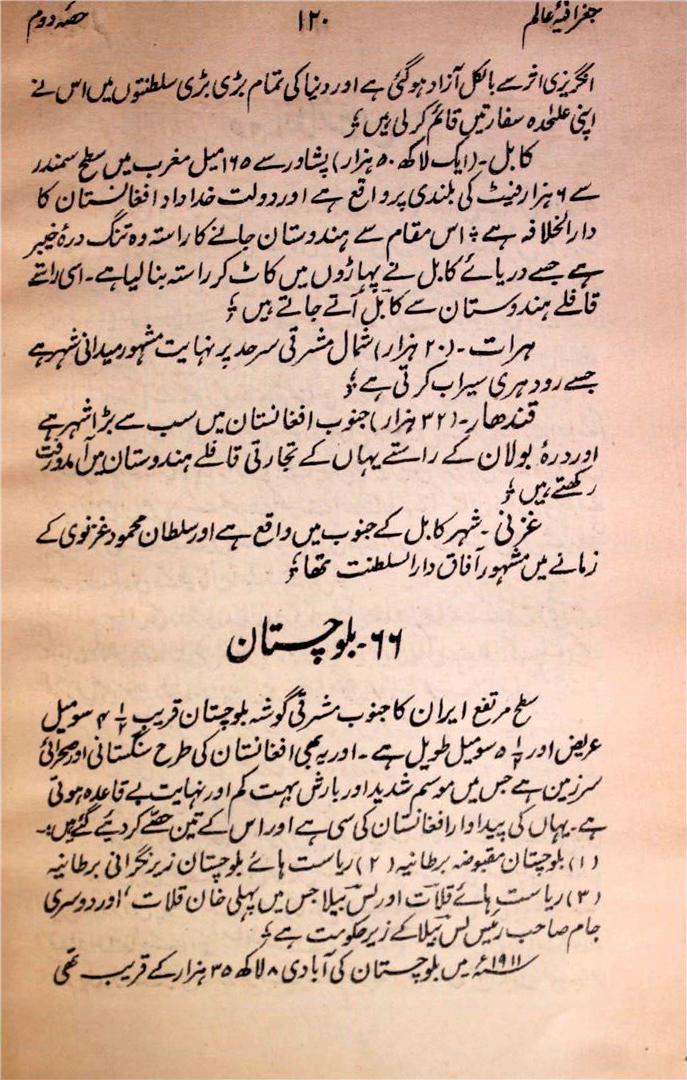 جغرافیۂ عالم ۱۲۰ حصّہ دوم
انگریزی اثر سے بالکل آزاد ہو گئی ہے اور دنیا کی تمام بڑی بڑی سلطنتوں میں اس نے
اپنی علٰحدہ سفارتیں قائم کر لی ہیں ؛
کابل۔ (ایک لاکھ ۵۰ ہزار) پشاور سے ۱۶۵ میل مغرب میں سطح سمندر
سے ۶ ہزار فیٹ کی بلندی پر واقع ہے اور دولت خداداد افغانستان کا
دارالخلافہ ہے ؛ اس مقام سے ہندوستان جانے کا راستہ وہ تنگ درۂ خیبر
ہے جسے دریائے کابل نے پہاڑوں میں کاٹ کر راستہ بنا لیا ہے۔ اسی راستے
قافلے ہندوستان سے کابل آتے جاتے ہیں ؛
ہرات۔ (۲۰ ہزار) شمال مشرقی سرحد پر نہایت مشہور میدانی شہر ہے
جسے رود ہری سیراب کرتی ہے ؛
قندھار۔ (۳۲ ہزار) جنوب افغانستان میں سب سے بڑا شہر ہے
اور درۂ بولان کے راستے یہاں کے تجارتی قافلے ہندوستان میں آمدورفت
رکھتے ہیں ؛
غزنی۔ شہر کابل کے جنوب میں واقع ہے اور سلطان محمود غزنوی کے
زمانے میں مشہور آفاق دارالسلطنت تھا ؛
۶۶۔ بلوچستان
سطح مرتفع ایران کا جنوب مشرقی گوشہ بلوچستان قریب ۴ سو میل
عریض اور ۵ سو میل طویل ہے۔ اور یہ بھی افغانستان کی طرح سنگستانی اور صحرائی
سرزمین ہے جس میں موسم شدید اور بارش بہت کم اور نہایت بے قاعدہ ہوتی
ہے۔ یہاں کی پیداوار افغانستان کی سی ہے اور اس کے تین حصّے کر دیے گئے ہیں :۔
(۱) بلوچستان مقبوضہ برطانیہ (۲) ریاست ہائے بلوچستان زیر نگرانی برطانیہ
(۳) ریاست ہائے قلات اور لس بیلا جس میں پہلی خان قلات، اور دوسری
جام صاحب رئیس لس بیلا کے زیر حکومت ہے ؛
۱۹۱۱ء میں بلوچستان کی آبادی ۸ لاکھ ۳۵ ہزار کے قریب تھی